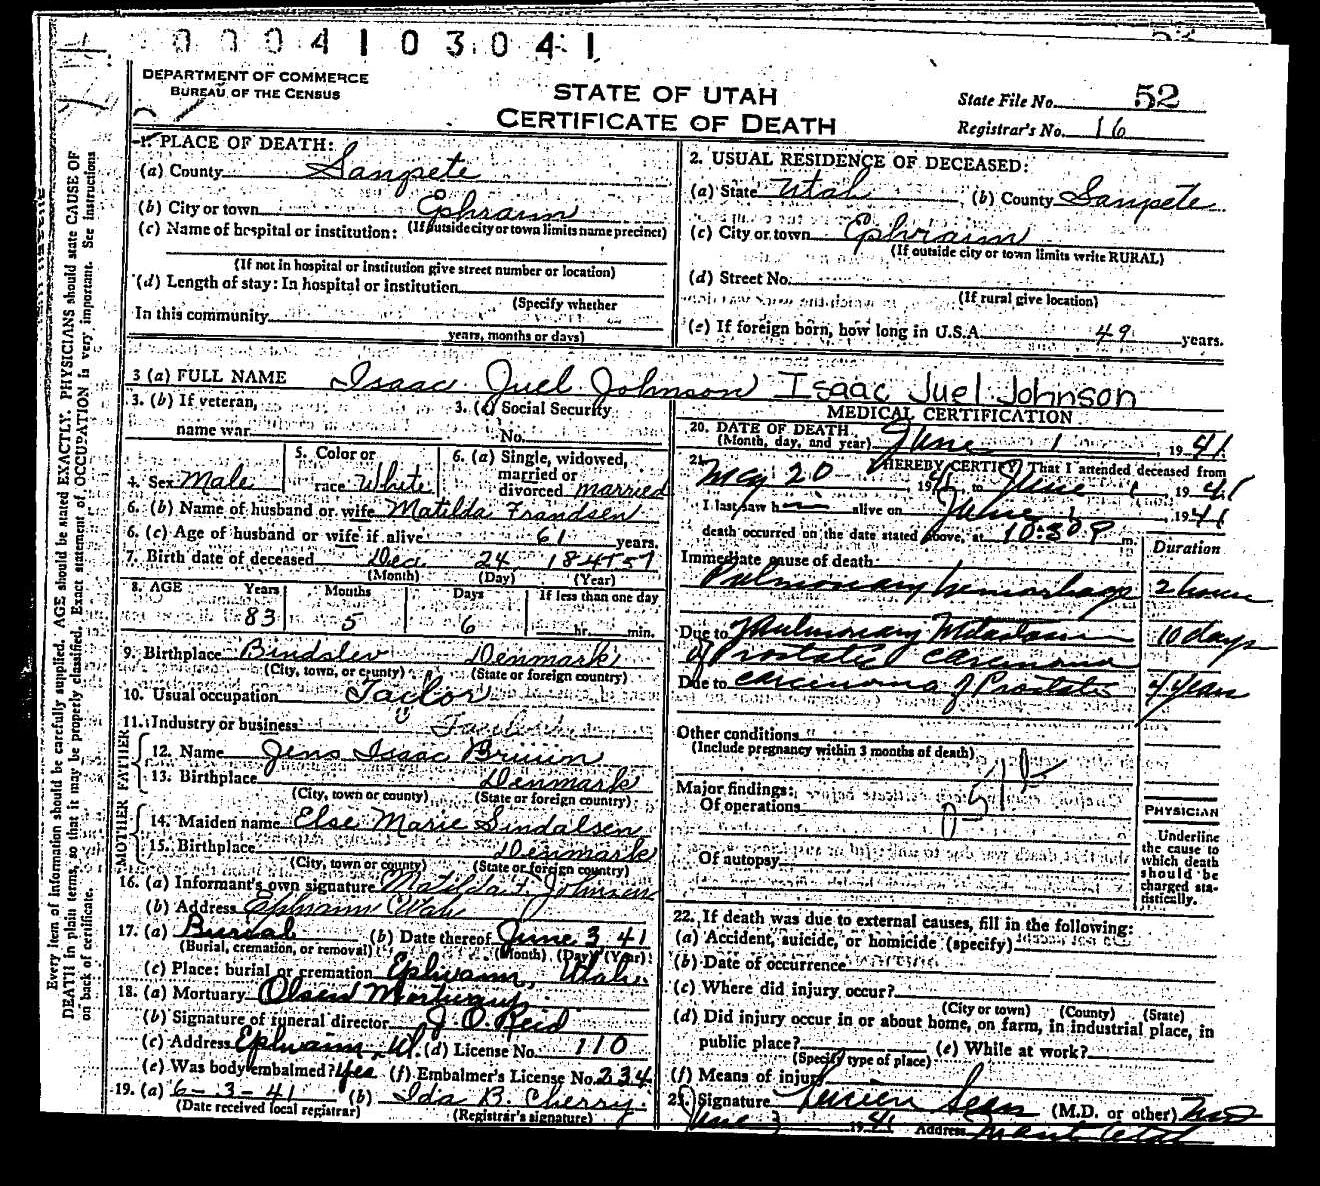 0004103041
DEPARTMENT OF COMMERCE
BUREAU OF THE CENSUS
STATE OF UTAH
CERTIFICATE OF DEATH
State File No. 52
Registrar's No. 16
Every item of information should be carefully supplied. AGE should be stated EXACTLY. PHYSICIANS should state CAUSE OF
DEATH in plain terms, so that it may be properly classified. Exact statement of OCCUPATION is very important. See instructions
on back of certificate.
1. PLACE OF DEATH:
(a) County Sanpete
(b) City or town Ephraim
(If outside city or town limits name precinct)
(c) Name of hospital or institution:
(If not in hospital or institution give street number or location)
(d) Length of stay: In hospital or institution
(Specify whether
In this community
years, months or days)
2. USUAL RESIDENCE OF DECEASED:
(a) State Utah (b) County Sanpete
(c) City or town Ephraim
(If outside city or town limits write RURAL)
(d) Street No.
(If rural give location)
(e) If foreign born, how long in U.S.A. 49 years.
3 (a) FULL NAME Isaac Juel Johnson Isaac Juel Johnson
3. (b) If veteran,
name war
3. (c) Social Security
No.
4. Sex Male
5. Color or
race White
6. (a) Single, widowed,
married or
divorced married
6. (b) Name of husband or wife Matilda Frandsen
6. (c) Age of husband or wife if alive 61 years.
7. Birth date of deceased Dec 24 1857
(Month) (Day) (Year)
8. AGE Years Months Days If less than one day
83 5 6 hr. min.
9. Birthplace Bindslev Denmark
(City, town, or county) (State or foreign country)
10. Usual occupation Taylor
11. Industry or business
FATHER
12. Name Jens Isaac Bruun
13. Birthplace Denmark
(City, town or county) (State or foreign country)
MOTHER
14. Maiden name Else Marie Sindalsen
15. Birthplace Denmark
(City, town or county) (State or foreign country)
16. (a) Informant's own signature Matilda F. Johnson
(b) Address Ephraim Utah
17. (a) Burial (b) Date thereof June 3 41
(Burial, cremation, or removal) (Month) (Day) (Year)
(c) Place: burial or cremation Ephraim, Utah.
18. (a) Mortuary Olsen Mortuary
(b) Signature of funeral director J. O. Reid
(c) Address Ephraim, Ut. (d) License No. 110
(e) Was body embalmed? Yes (f) Embalmer's License No. 234
19. (a) 6-3-41 (b) Ida B. Cherry.
(Date received local registrar) (Registrar's signature)
MEDICAL CERTIFICATION
20. DATE OF DEATH
(Month, day, and year) June 1 1941.
21. I HEREBY CERTIFY That I attended deceased from
May 20 1941 to June 1 1941
I last saw him alive on June 1, 1941
death occurred on the date stated above, at 10:30 P m.
Duration
Immediate cause of death
Pulmonary hemorrhage 2 hours
Due to Pulmonary Metastasis 10 days
of Prostatic carcinoma
Due to carcinoma of Prostate 4 years
Other conditions
(Include pregnancy within 3 months of death)
Major findings:
Of operations
Of autopsy
PHYSICIAN
Underline
the cause to
which death
should be
charged sta-
tistically.
22. If death was due to external causes, fill in the following:
(a) Accident, suicide, or homicide (specify)
(b) Date of occurrence
(c) Where did injury occur?
(City or town) (County) (State)
(d) Did injury occur in or about home, on farm, in industrial place, in
public place? (e) While at work?
(Specify type of place)
(f) Means of injury
23. Signature (M.D. or other) M D
June 3 1941 Address Manti Utah